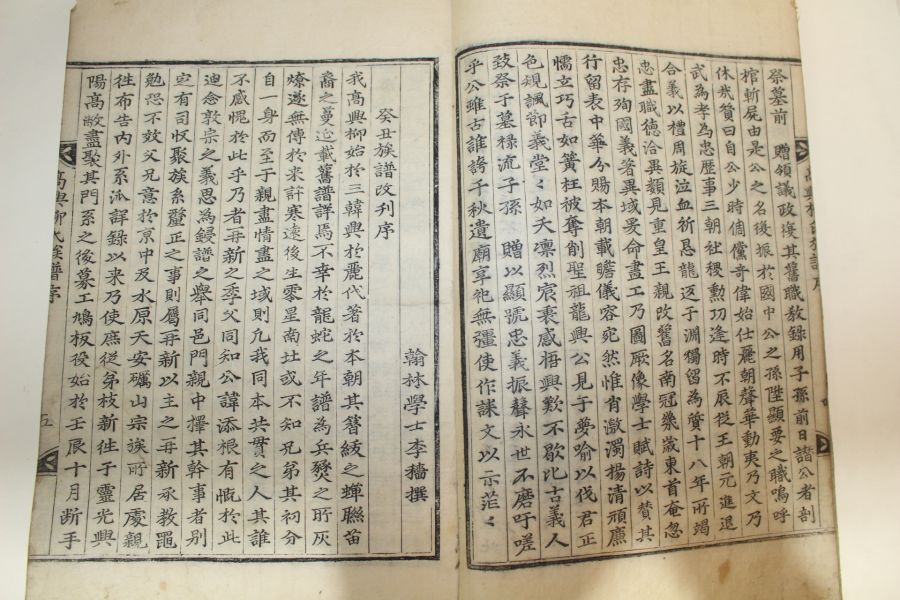 祭墓前 贈領議政復其舊職敎錄用子孫前日譖公者剖
棺斬屍由是公之名復振於國中公之孫陞顯要之職嗚呼
休㦲贊曰自公少時倜儻奇偉始仕麗朝聲華動夷乃文乃
武為孝為忠歷事三朝社稷勲功逢時不辰從王朝元進退
合義以禮周旋泣血祈恩龍返于淵獨留為質十八年所竭
忠盡職德洽異類見重皇王親改舊名南冠㡬歲東首奄忽
忠存殉國義著異域爰命畫工乃圖厥像學士賦詩以賛其
行留表中華分賜本朝載瞻儀容宛然惟肖激濁揚清頑廉
懦立巧舌如簧枉被奪削聖祖龍興公見于夢喻以伐君正
色規諷節義堂〻如天凛烈宸衷感悟興歎不歇比古義人
致祭于墓祿流子孫 贈以顯號忠義振聲永世不磨吁嗟
乎公雖古誰謗千秋遺廟享祀無疆使作誄文以示茫〻
癸丑族譜改刋序
翰林學士李穡撰
我高興柳始於三韓興於麗代著於本朝其簪紱之蟬聯苗
裔之蔓迤載舊譜詳焉不幸於龍蛇之年譜為兵燹之所灰
燎遂無傳於来許寒遠後生零星南北或不知兄弟其初分
自一身而至于親盡情盡之域則凡我同本共貫之人其誰
不感愧於此乎乃者再新之季父同知公諱添根有慨於此
迪念敦宗之義思為鋟譜之舉同邑門親中擇其幹事者别
定有司収聚族系釐正之事則屬再新以主之再新承教黽
勉恐不效父兄意於京中及水原天安礪山宗族所居處親
徃布告内外系派詳録以来乃使庶從弟枝新徃于靈光興
陽高敞盡聚其門系之後募工鳩板役始於壬辰十月断手
高興柳氏族譜序
五